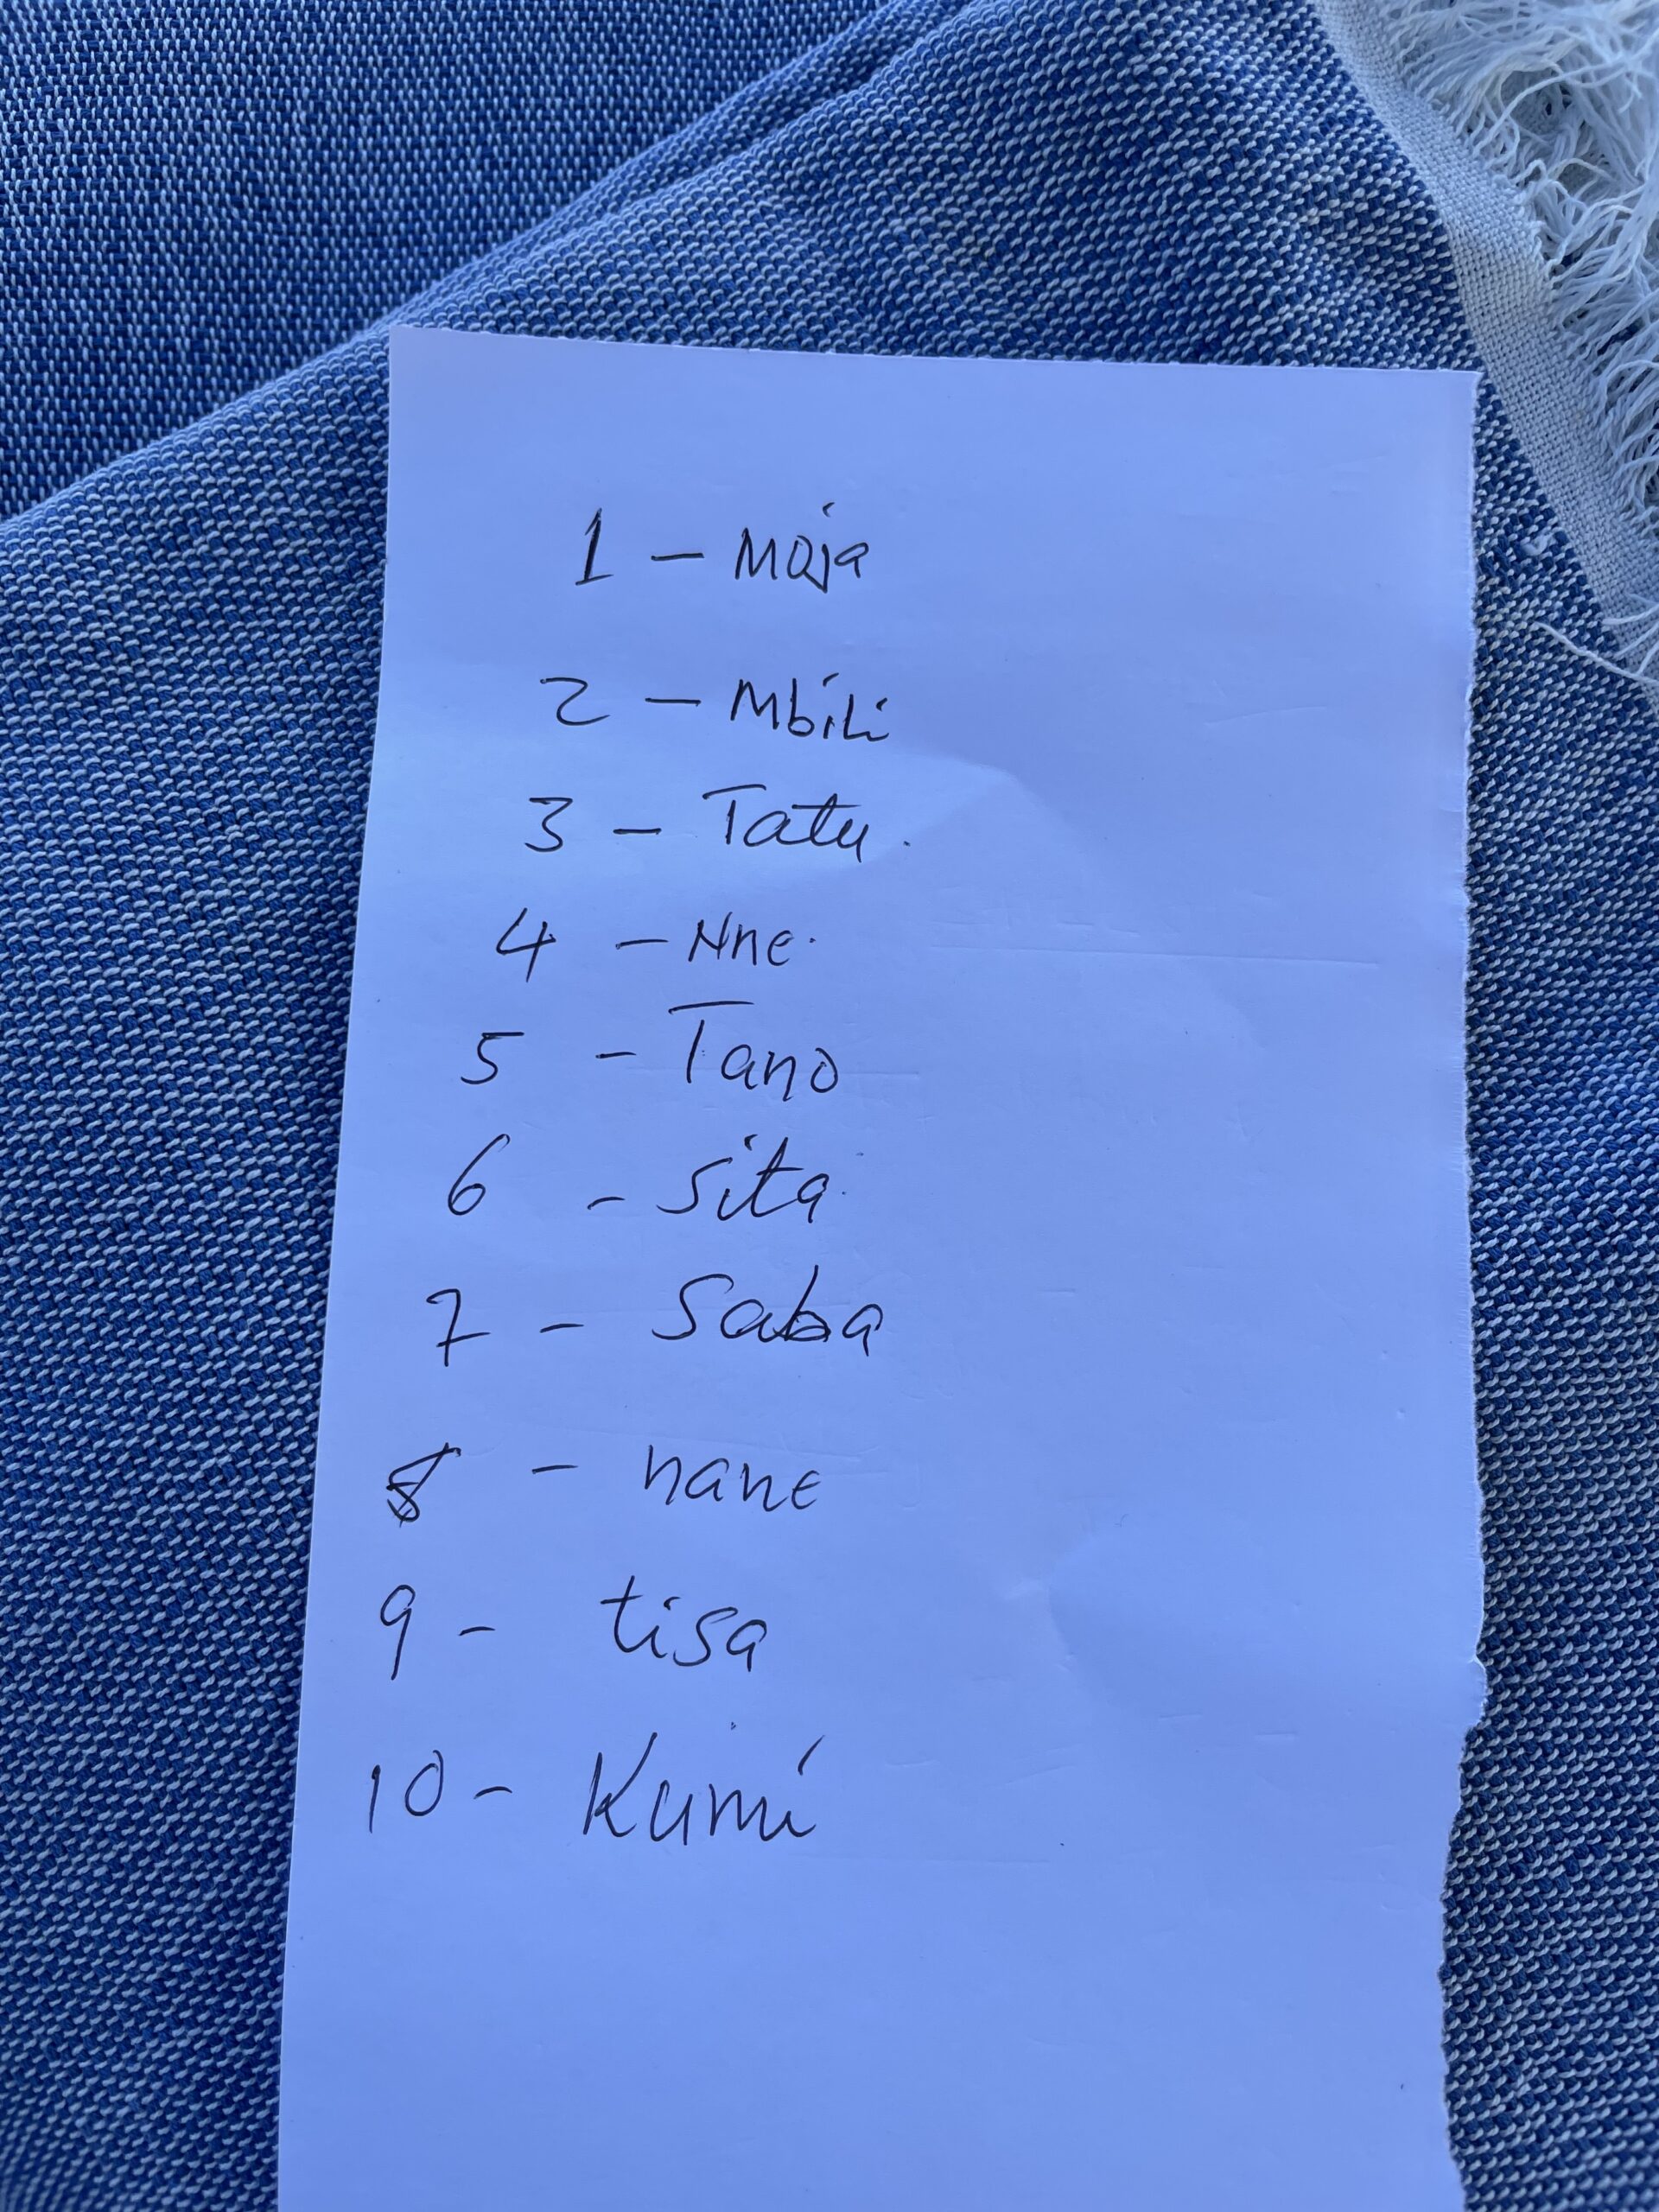 1 - Moja
2 - Mbili
3 - Tatu.
4 - Nne.
5 - Tano
6 - Sita
7 - Saba
8 - nane
9 - tisa
10 - Kumi